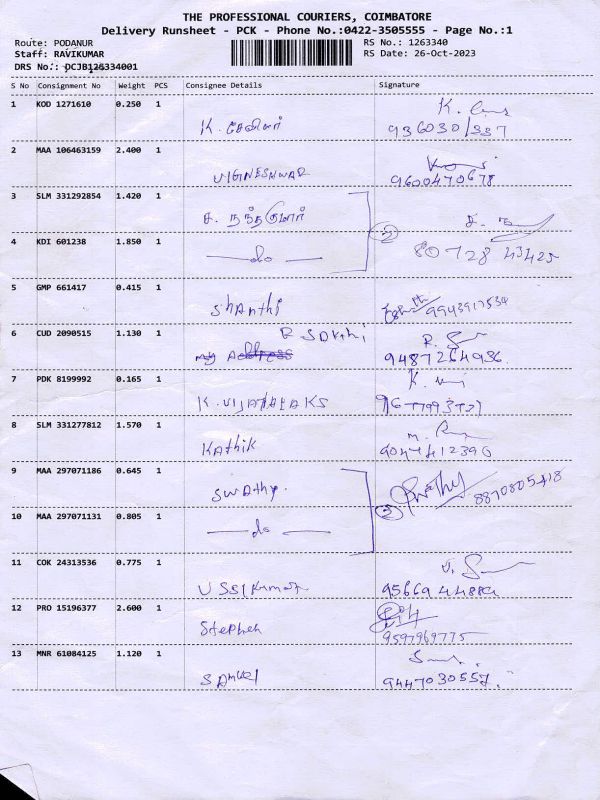 THE PROFESSIONAL COURIERS, COIMBATORE
Delivery Runsheet - PCK - Phone No.:0422-3505555 - Page No.:1
Route: PODANUR RS No.: 1263340
Staff: RAVIKUMAR RS Date: 26-Oct-2023
DRS No.: DCJB126334001
S No Consignment No Weight PCS Consignee Details Signature
1 KOD 1271610 0.250 1
K.
2 MAA 106463159 2.400 1
VIGNESHWAR 9600470678
3 SLM 331292854 1.420 1
ச. நந்தகுமார்
4 KDI 601238 1.850 1
do 2 80728 43425
5 GMP 661417 0.415 1
Shanthi 9943917534
6 CUD 2090515 1.130 1
My Address 9487264936
7 PDK 8199992 0.165 1
8 SLM 331277812 1.570 1
Kathik
9 MAA 297071186 0.645 1
Swathy. 8870805418
10 MAA 297071131 0.805 1
do 2
11 COK 24313536 0.775 1
12 PRO 15196377 2.600 1
Stephen 9597969775
13 MNR 61084125 1.120 1
Samuel 9447030557.